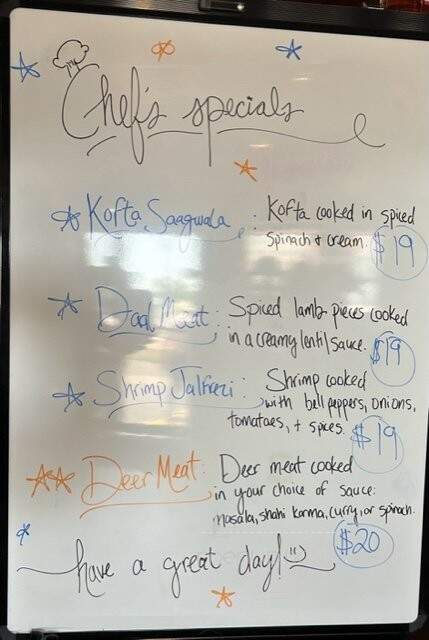 Chef's specials
Kofta Saagwala : Kofta cooked in spiced
spinach + cream. $19
Daal Meat : Spiced lamb pieces cooked
in a creamy lentil sauce. $19
Shrimp Jalfrezi : Shrimp cooked
with bell peppers, onions,
tomatoes, + spices. $19
Deer Meat : Deer meat cooked
in your choice of sauce:
masala, shahi korma, curry, or spinach.
$20
have a great day! :)